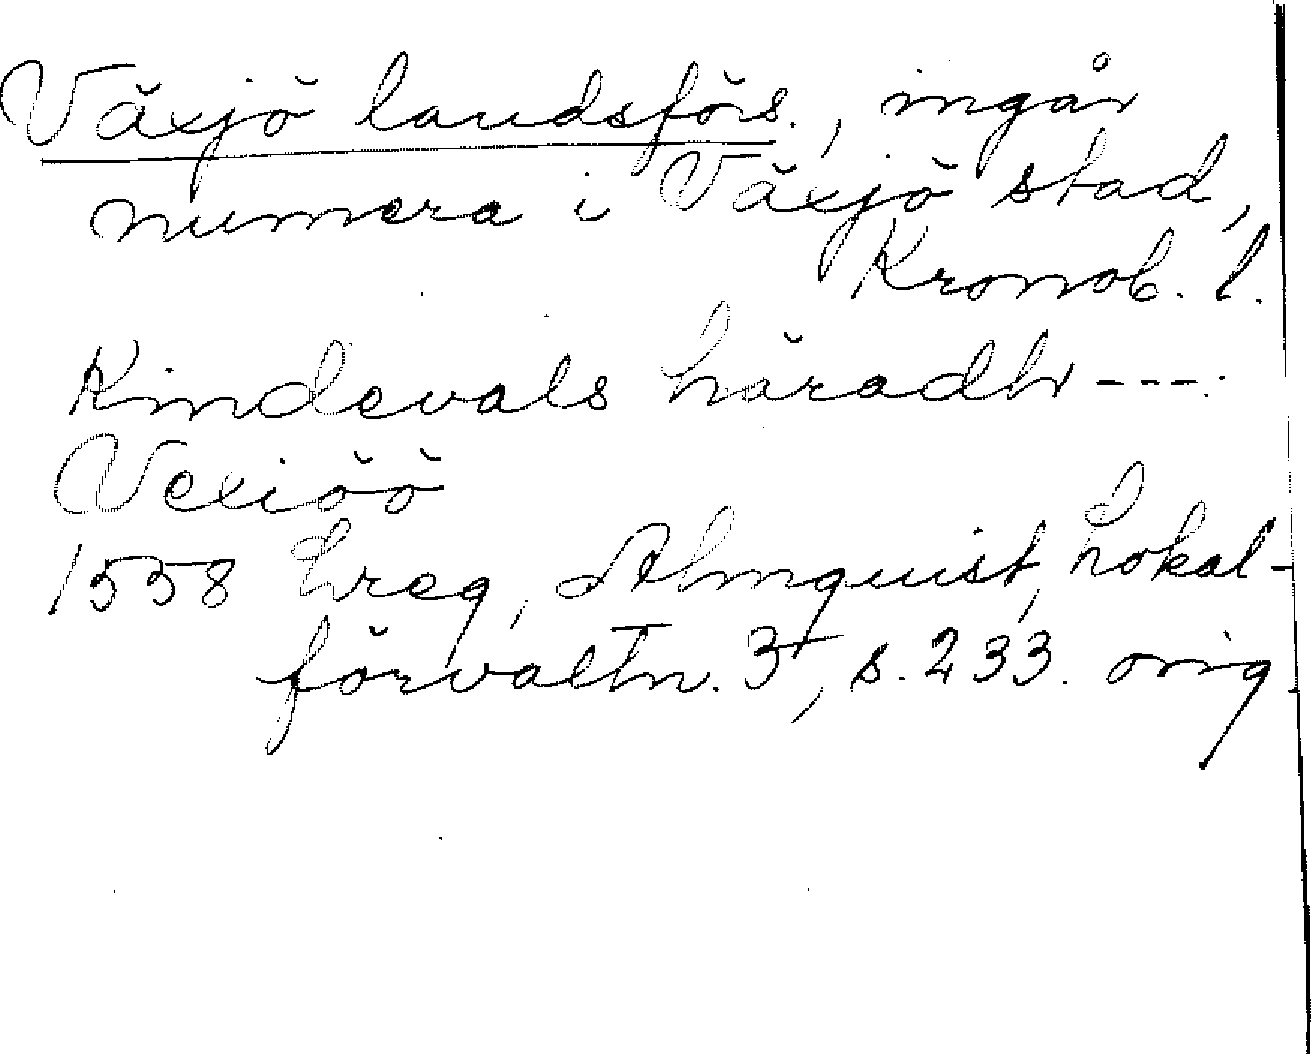 Växjö landsförs., ingår
numera i Växjö stad,
Kronob. l.
Kindevals häradhr ---:
Vexiöö
1558 Lreg, Almquist, Lokal-
förvaltn. 3, s. 233. orig.